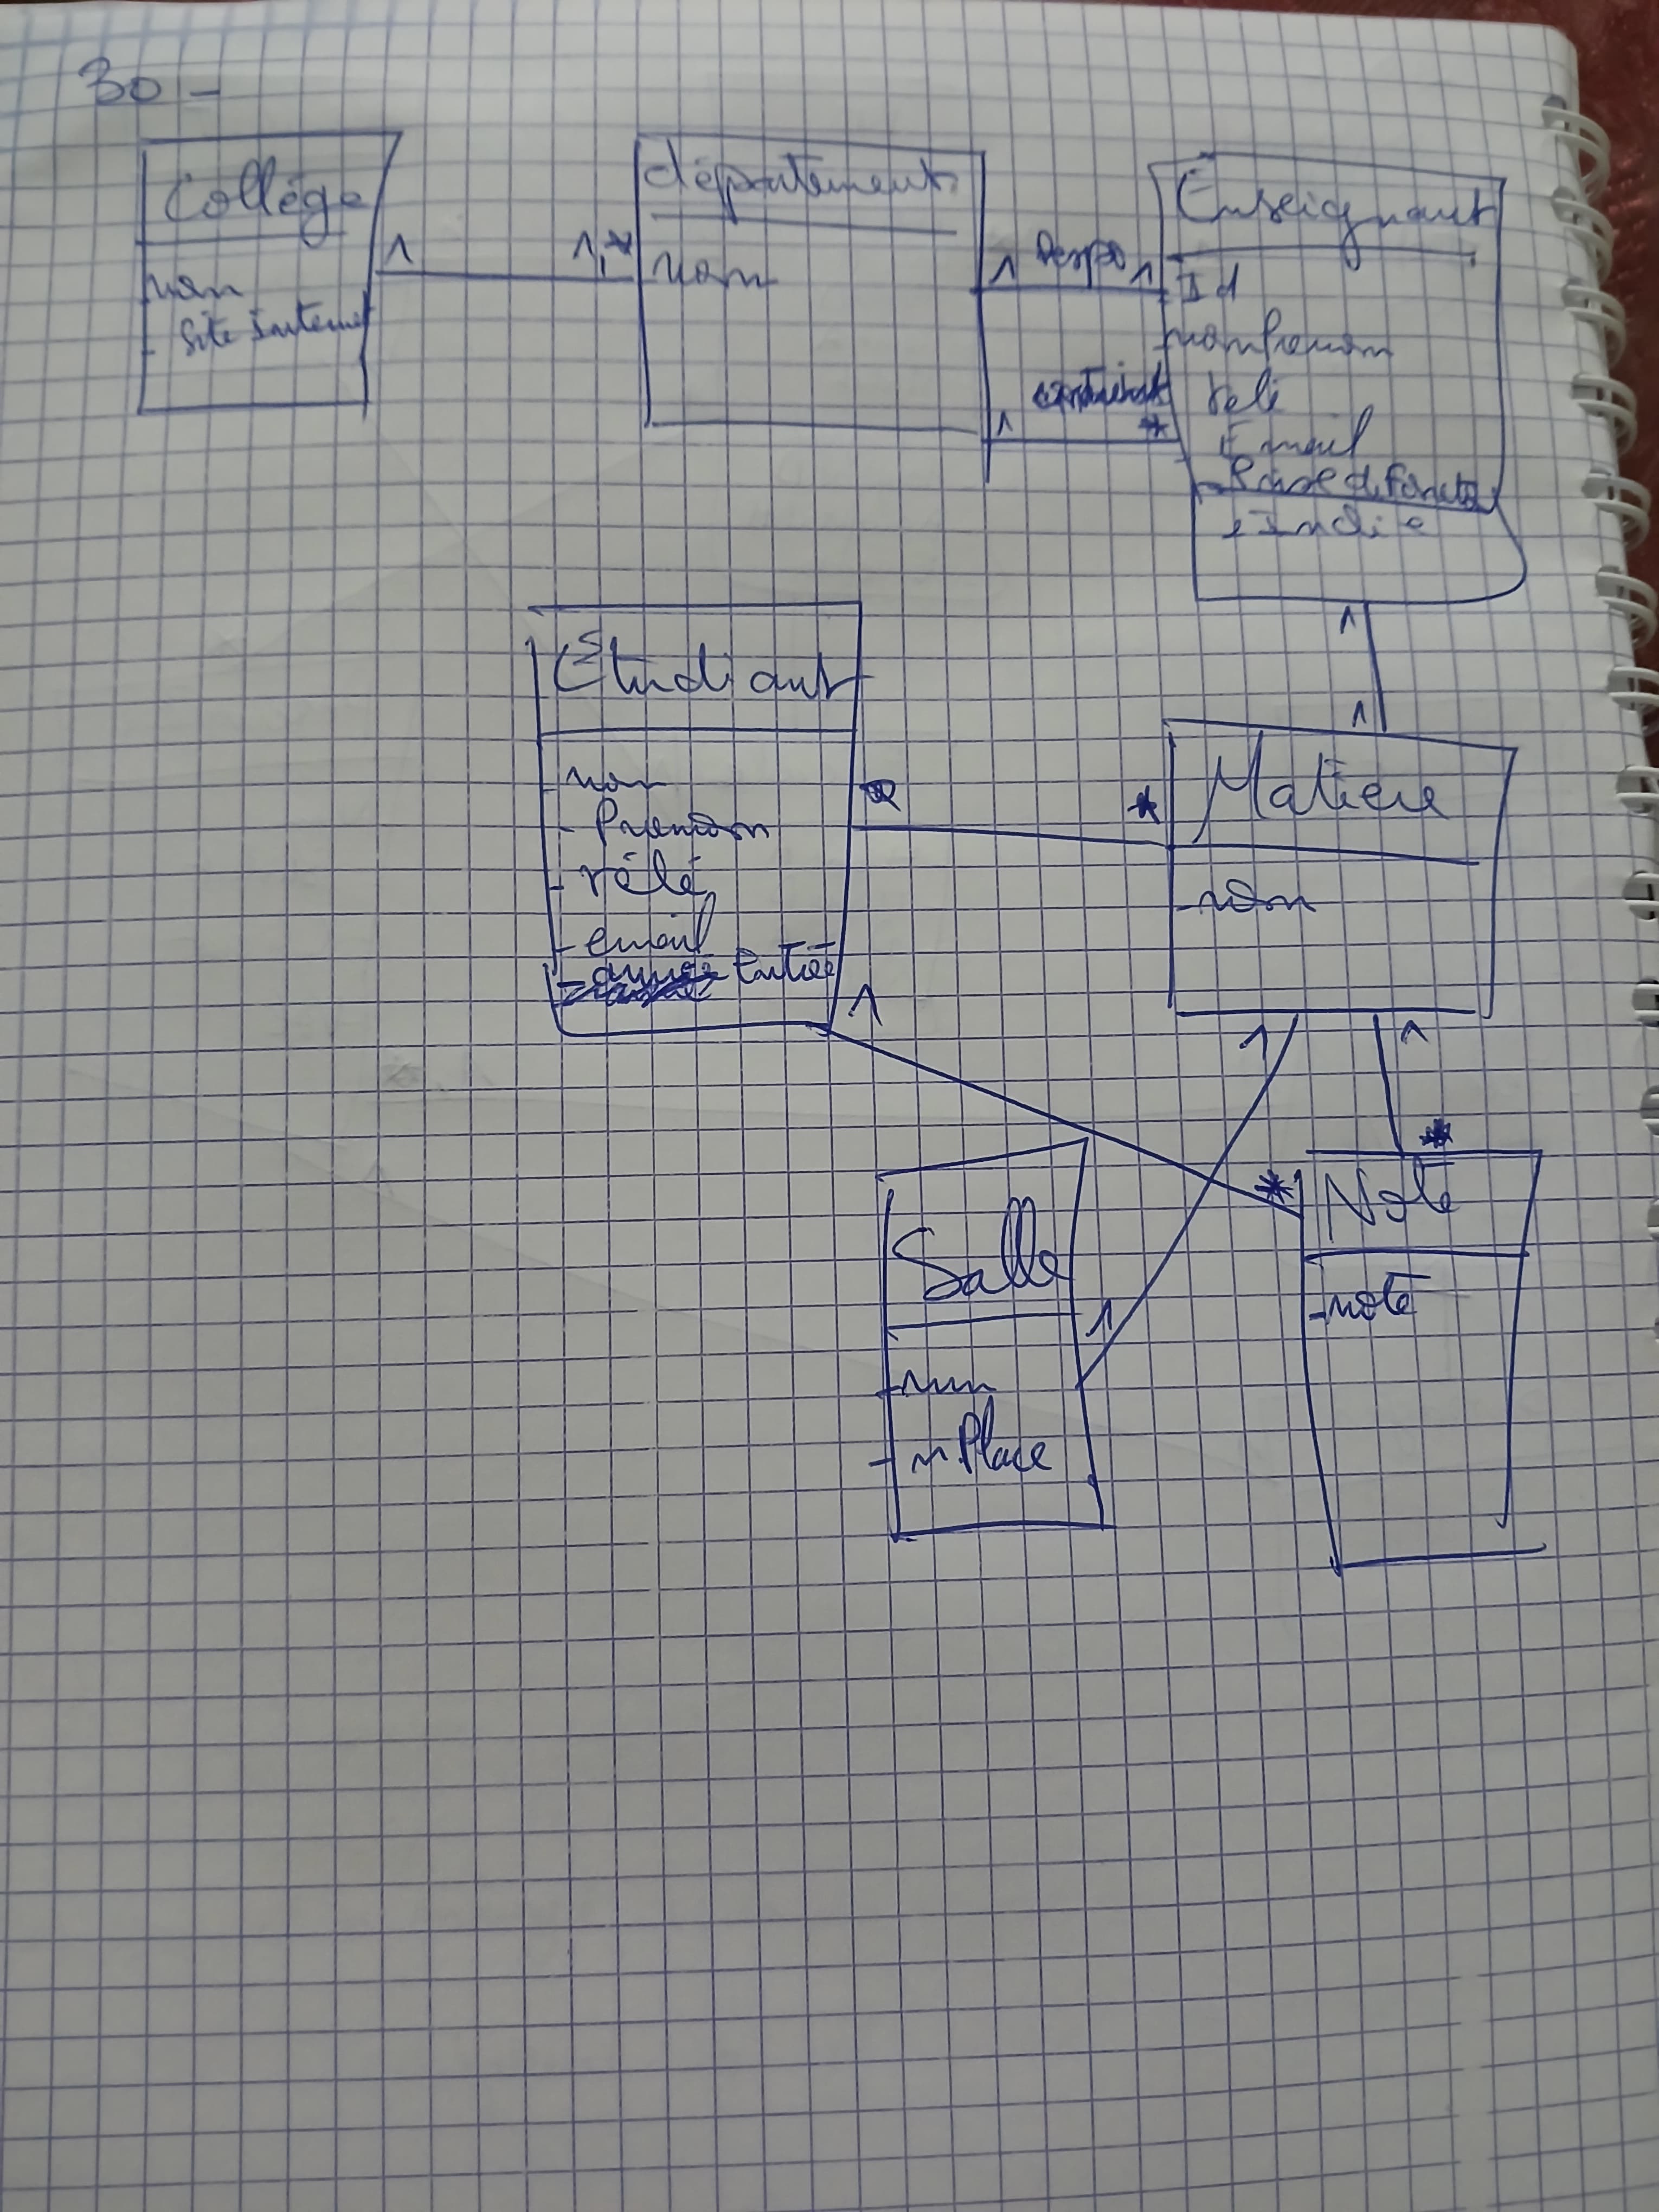 30 -
Collège
nom
- Site Internet
1
1,*
département
nom
1
Respo
1
1
contient
*
Enseignant
Id
nom Prenom
télé
Email
- Prise de fonctio
Indice
1
1
Étudiant
- nom
- Prenom
- télé
- email
- année Entrée
*
*
1
Matiere
- nom
1
1
Salle
- num
- n.Place
1
*
*
Note
- note